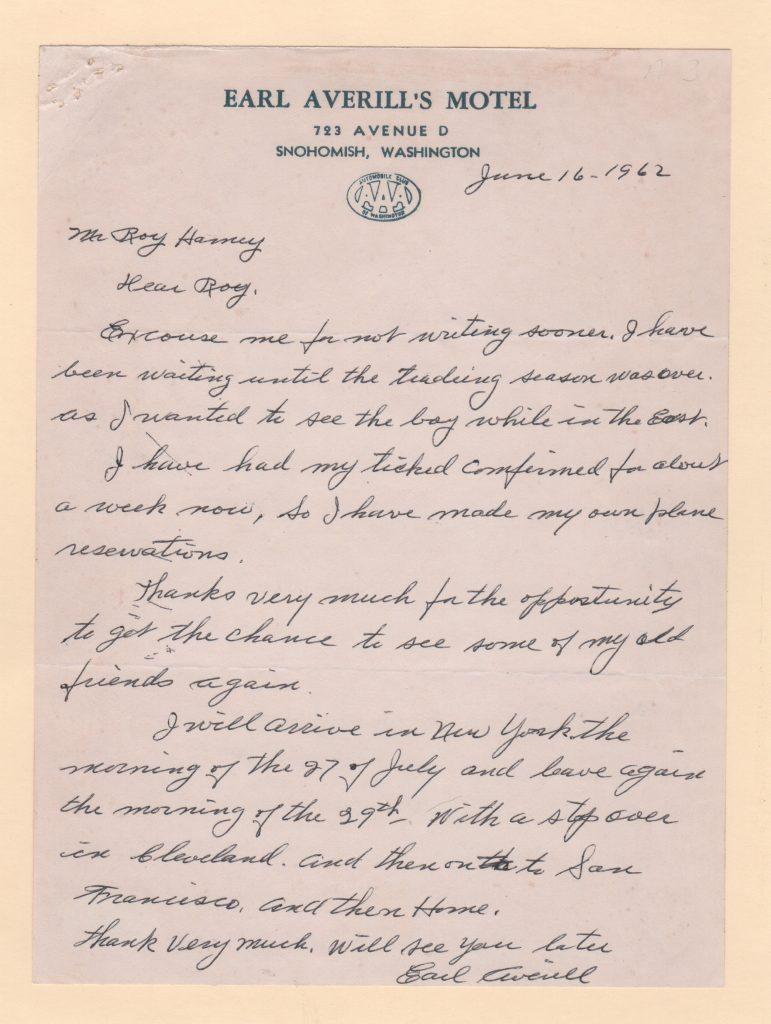 EARL AVERILL'S MOTEL
723 AVENUE D
SNOHOMISH, WASHINGTON
AUTOMOBILE CLUB
OF WASHINGTON
June 16-1962
Mr Roy Hamey
Dear Roy.
Excouse me for not writing sooner. I have
been waiting until the tradeing season was over.
as I wanted to see the boy while in the East.
I have had my ticked comfirmed for about
a week now, so I have made my own plane
reservations.
Thanks very much for the oppostunity
to get the chance to see some of my old
friends again.
I will arrive in New York the
morning of the 27 of July and leave again
the morning of the 29th- With a stop over
in Cleveland. and then on to San
Francisco. and then Home.
Thank Very much. Will see you later
Earl Averill